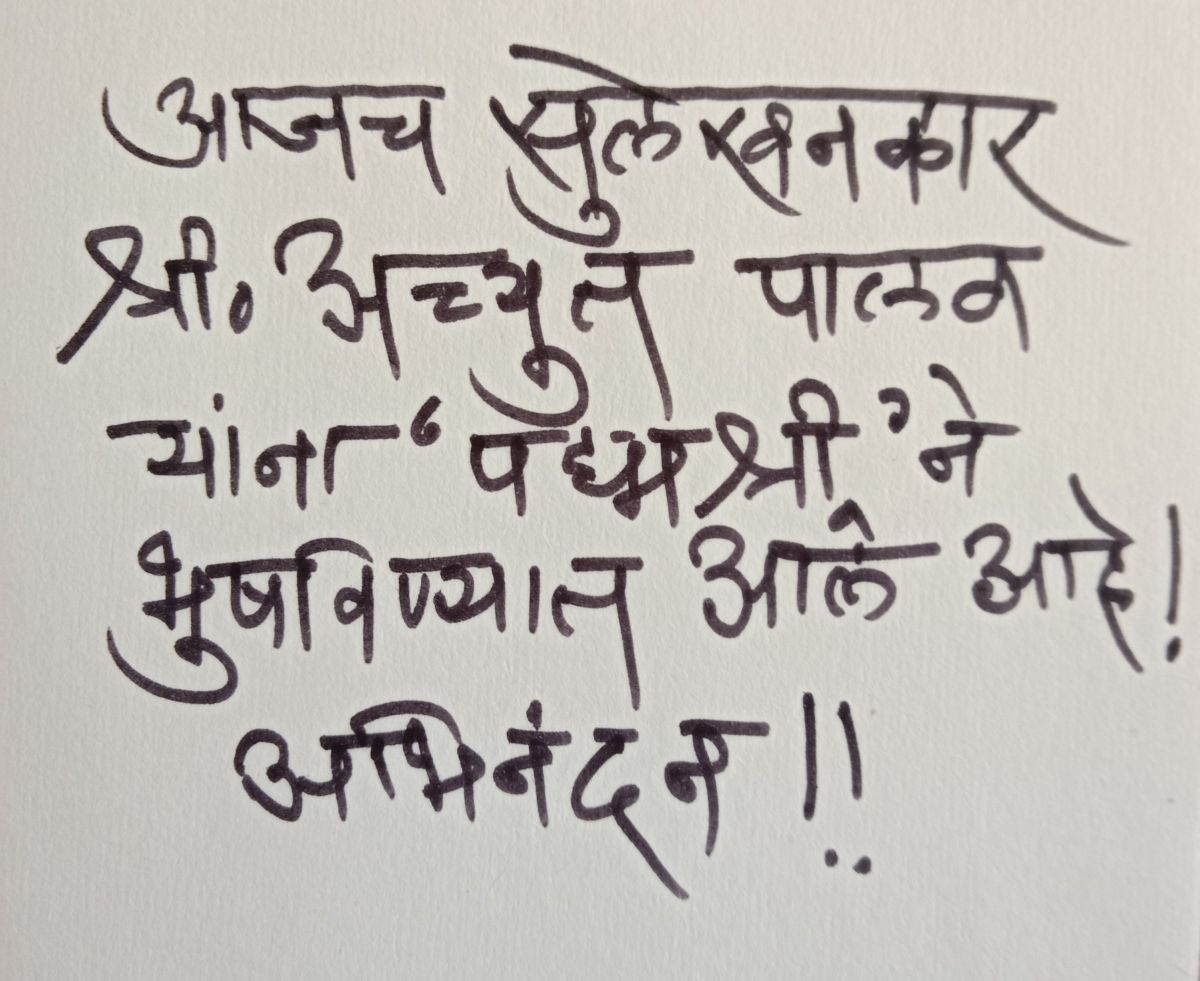 आजच सुलेखनकार
श्री. अच्युत पालव
यांना 'पद्मश्री' ने
भुषविण्यात आले आहे!
अभिनंदन!!